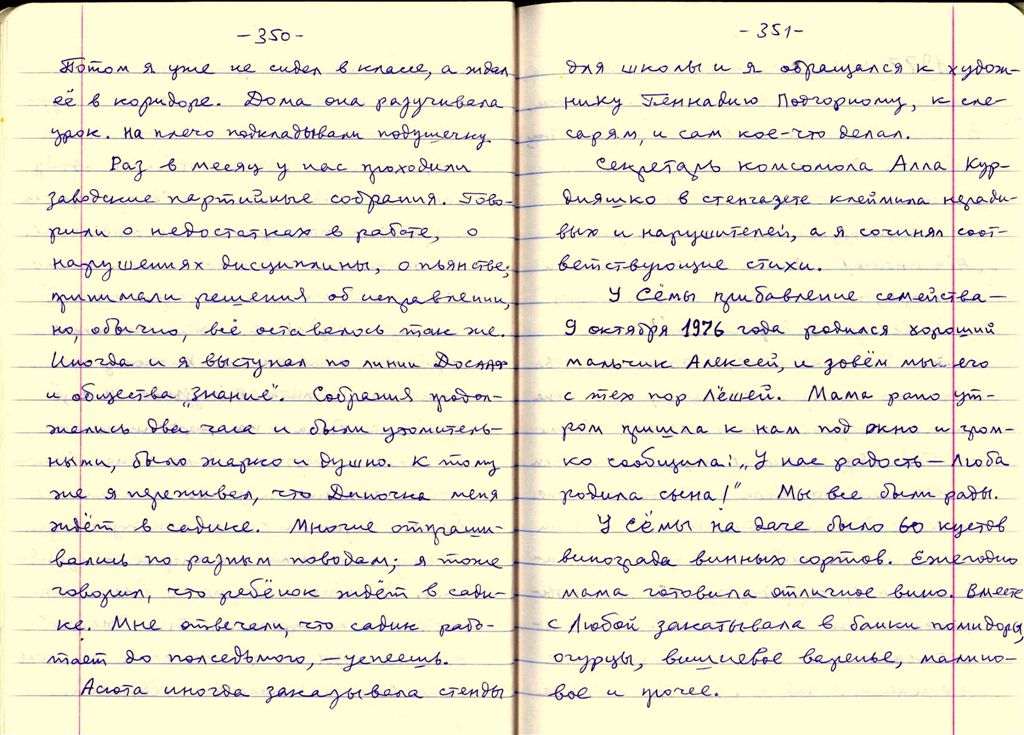 -350-
Потом я уже не сидел в классе, а ждал
её в коридоре. Дома она разучивала
урок. На плечо подкладывали подушечку.
Раз в месяц у нас проходили
заводские партийные собрания. Гово-
рили о недостатках в работе, о
нарушениях дисциплины, о пьянстве;
принимали решения об исправлении,
но, обычно, всё оставалось так же.
Иногда и я выступал по линии Досааф
и общества „Знание". Собрания продол-
жались два часа и были утомитель-
ными, было жарко и душно. К тому
же я переживал, что Диночка меня
ждёт в садике. Многие отпраши-
вались по разным поводам; я тоже
говорил, что ребёнок ждёт в сади-
ке. Мне отвечали, что садик рабо-
тает до полседьмого, — успеешь.
Асюта иногда заказывала стенды
-351-
для школы и я обращался к худож-
нику Геннадию Подгорному, к сле-
сарям, и сам кое-что делал.
Секретарь комсомола Алла Кур-
дияшко в стенгазете клеймила неради-
вых и нарушителей, а я сочинял соот-
ветствующие стихи.
У Сёмы прибавление семейства —
9 октября 1976 года родился хороший
мальчик Алексей, и зовём мы его
с тех пор Лёшей. Мама рано ут-
ром пришла к нам под окно и гром-
ко сообщила: „У нас радость — Люба
родила сына!" Мы все были рады.
У Сёмы на даче было 60 кустов
винограда винных сортов. Ежегодно
мама готовила отличное вино. Вместе
с Любой закатывала в банки помидоры,
огурцы, вишневое варенье, малино-
вое и прочее.